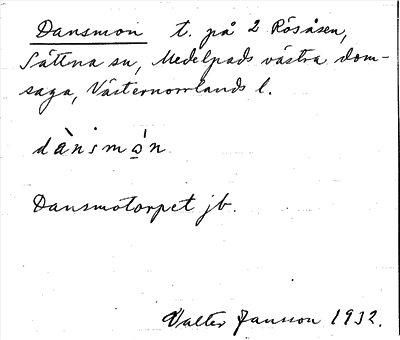 Dansmon t. på 2 Rösåsen,
Sättna sn, Medelpads västra dom-
saga, Västernorrlands l.
dànsmə̀n
Dansmotorpet jb.
Valter Jansson 1932.